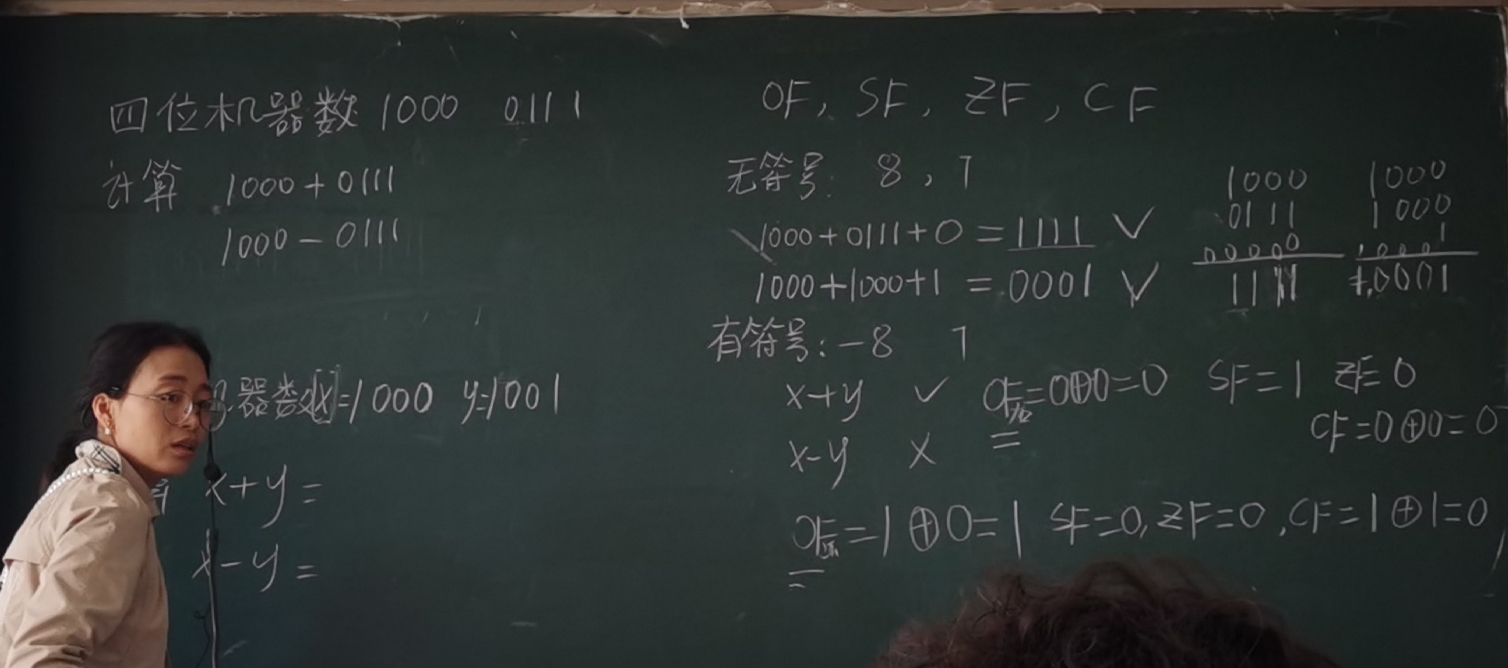 四位机器数 1000 0111
计算 1000+0111
1000-0111
器数[x]=1000 y=1001
x+y=
x-y=
OF, SF, ZF, CF
无符号: 8, 7
1000+0111+0=1111 ✓
1000+1000+1=0001 ✓
1000
0111
00000
1111
1000
1000
10001
1,0001
有符号:-8 7
x+y ✓ OF加=0⊕0=0 SF=1 ZF=0
CF=0⊕0=0
x-y ×
OF=1⊕0=1 SF=0, ZF=0, CF=1⊕1=0